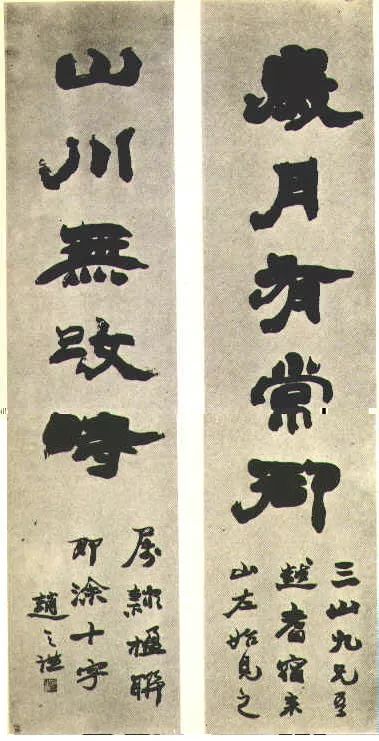 歲月有常御
三山九兄吾
越耆宿來
山左始見之
山川無改時
屬隸楹聯
即涂十字
趙之謙